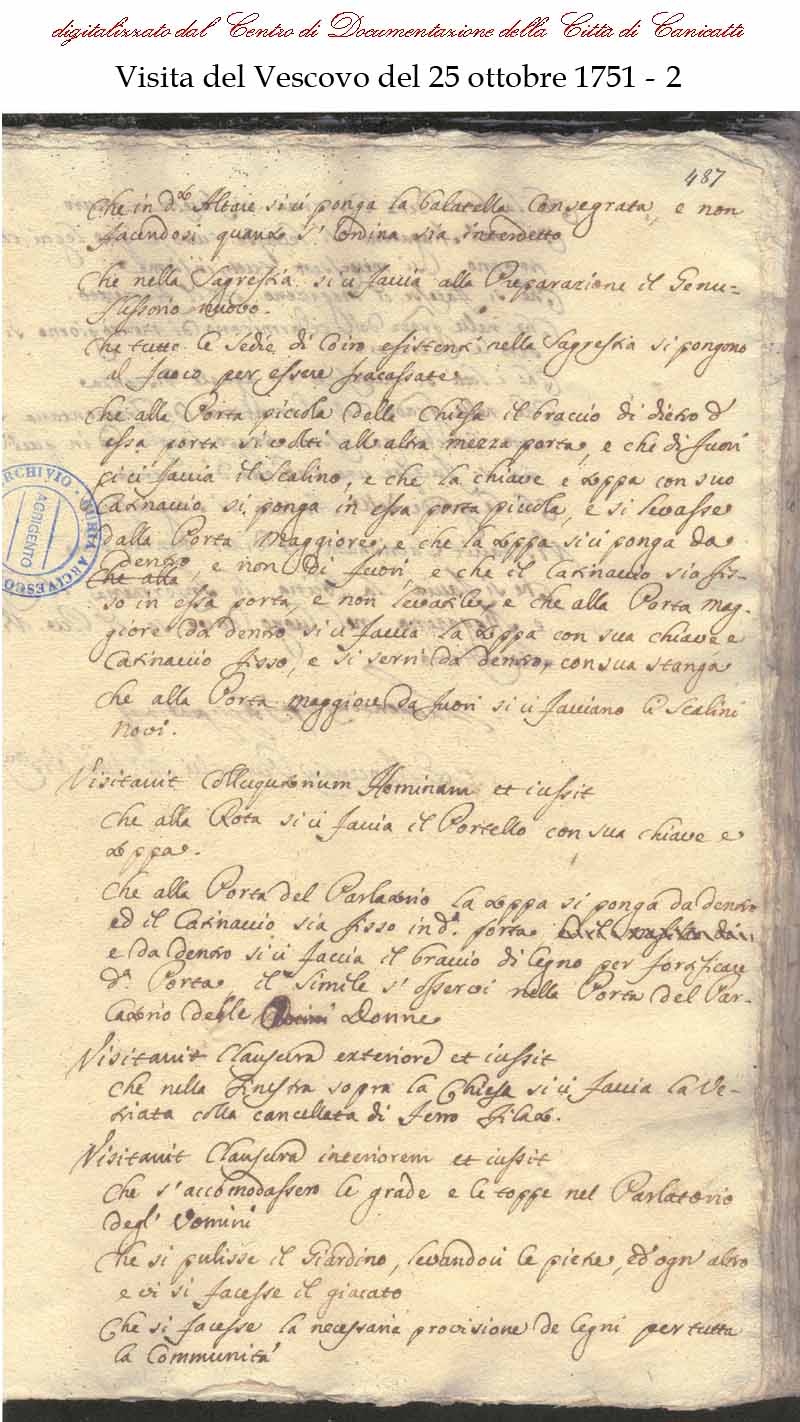 digitalizzato dal Centro di Documentazione della Città di Canicattì
Visita del Vescovo del 25 ottobre 1751 - 2
487
Che in d.to Altare si ci ponga la balatella Consegrata, e non
facendosi quanto s'ordina sia interdetto
Che nella Sagrestia si ci faccia alla Preparazione il Genu=
flussorio nuovo.
Che tutte le Sedie di Coiro esistenti nella Sagrestia si pongono
al fuoco per essere fracassate
Che alla Porta piccola della Chiesa il braccio di dietro d'
essa porta si volti all'altra mezza porta, e che di fuori
gi ci faccia il Scalino, e che la chiave e toppa con suo
Catinaccio si ponga in essa porta piccola, e si levasse
dalla Porta Maggiore, e che la toppa si ci ponga da
ARCHIVIO · CURIA ARCIVESCO
AGRIGENTO
Che alla dentro, e non di fuori, e che il Catinaccio sia fis-
so in essa porta, e non levatile, e che alla Porta mag-
giore da dentro si ci faccia la toppa con sua chiave e
Catinaccio fisso, e si serri da dentro, con sua stanga
che alla Porta maggiore da fuori si ci facciano li Scalini
novi.
Visitavit Colluqutorium Hominum et iussit
Che alla Rota si ci faccia il Portello con sua chiave e
toppa.
Che alla Porta del Parlatorio la toppa si ponga da dentro
ed il Catinaccio sia fisso in d.a porta
e da dentro si ci faccia il braccio di legno per fortificare
d.a Porta, il simile s'osservi nella Porta del Par-
latorio delle Donne
Visitavit Clausura exteriore et iussit
Che nella Finestra sopra la Chiesa si ci faccia la Ve-
triata colla cancellata di ferro filato.
Visitavit Clausura interiorem et iussit
Che s'accomodassero le grade e le toppe nel Parlatorio
degl' Uomini
Che si pulisse il Giardino, levandoci le pietre, ed ogn'altro
e vi si facesse il giacato
Che si facesse la necessaria provisione de legni per tutta
la Communità